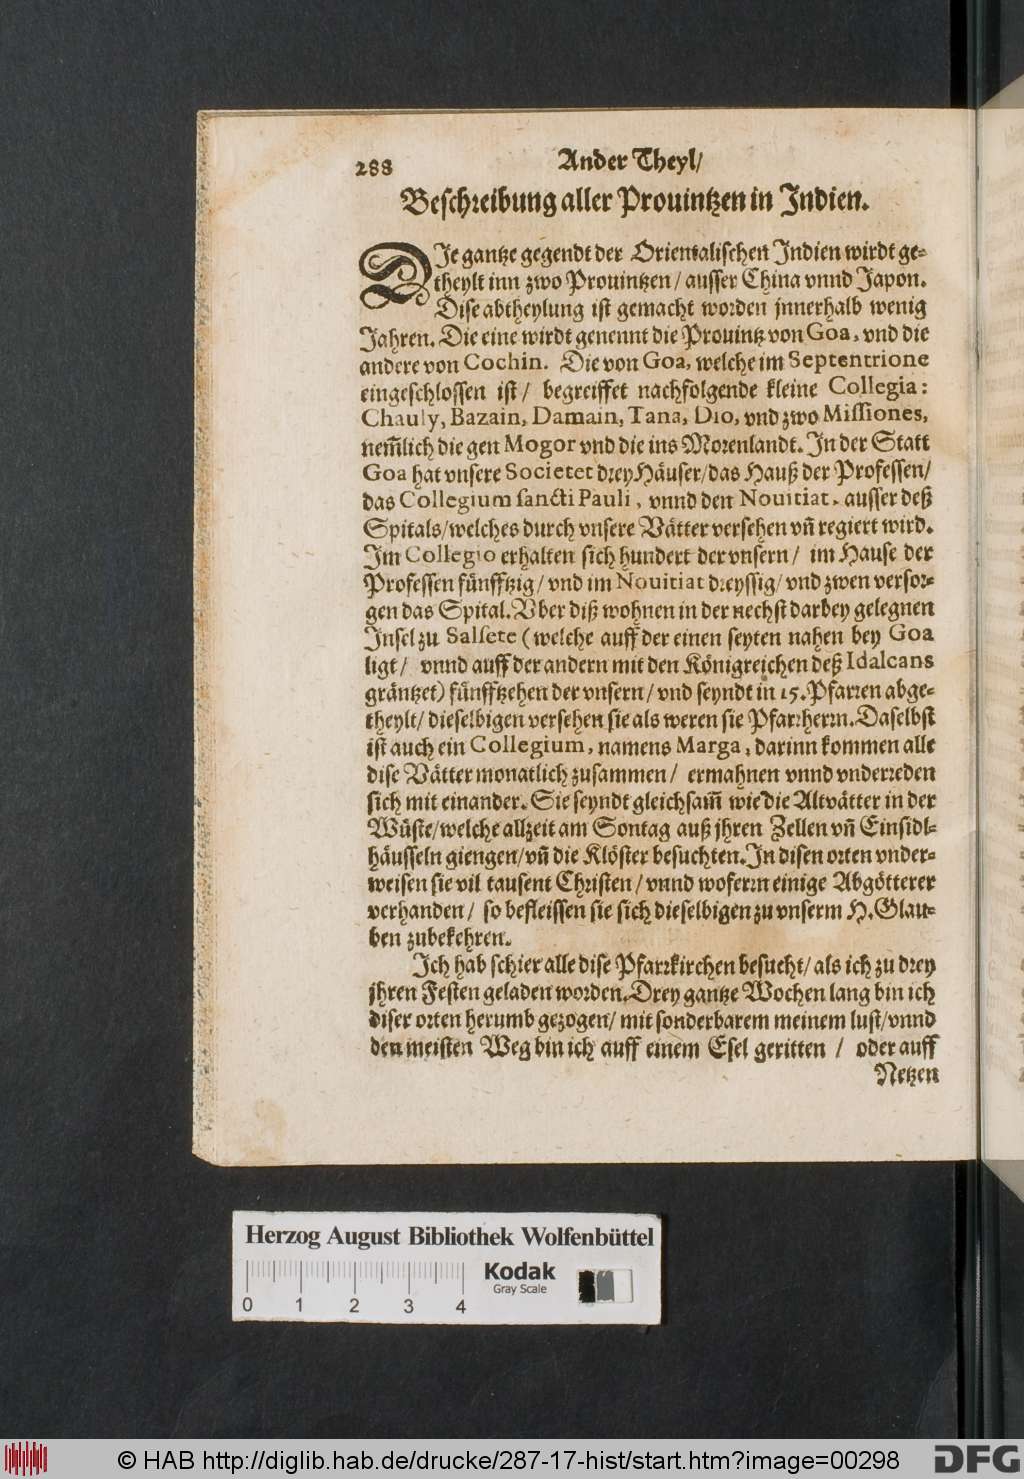 288 Ander Theyl/
Beschreibung aller Prouintzen in Indien.
DIe gantze gegendt der Orientalischen Indien wirdt ge⸗
theylt inn zwo Prouintzen / ausser China vnnd Japon.
Dise abtheylung ist gemacht worden jnnerhalb wenig
Jahren. Die eine wirdt genennt die Prouintz von Goa, vnd die
andere von Cochin. Die von Goa, welche im Septentrione
eingeschlossen ist / begreiffet nachfolgende kleine Collegia:
Chauly, Bazain, Damain, Tana, Dio, vnd zwo Missiones,
nem̃lich die gen Mogor vnd die ins Morenlandt. In der Statt
Goa hat vnsere Societet drey Häuser/das Hauß der Professen/
das Collegium sancti Pauli, vnnd den Nouitiat, ausser deß
Spitals/welches durch vnsere Vätter versehen vñ regiert wird.
Im Collegio erhalten sich hundert der vnsern / im Hause der
Professen fünfftzig/ vnd im Nouitiat dreyssig/ vnd zwen versor⸗
gen das Spital. Vber diß wohnen in der nechst darbey gelegnen
Insel zu Salsete (welche auff der einen seyten nahen bey Goa
ligt / vnnd auff der andern mit den Königreichen deß Idalcans
gräntzet) fünfftzehen der vnsern / vnd seyndt in 15. Pfarren abge⸗
theylt/ dieselbigen versehen sie als weren sie Pfarrherrn. Daselbst
ist auch ein Collegium, namens Marga, darinn kommen alle
dise Vätter monatlich zusammen / ermahnen vnnd vnderreden
sich mit einander. Sie seyndt gleichsam̃ wie die Altvätter in der
Wüste/welche allzeit am Sontag auß jhren Zellen vñ Einsidl⸗
häusseln giengen/vñ die Klöster besuchten. In disen orten vnder⸗
weisen sie vil tausent Christen / vnnd woferrn einige Abgötterer
verhanden / so befleissen sie sich dieselbigen zu vnserm H. Glau⸗
ben zubekehren.
Ich hab schier alle dise Pfarrkirchen besucht/ als ich zu drey
jhren Festen geladen worden. Drey gantze Wochen lang bin ich
diser orten herumb gezogen/ mit sonderbarem meinem lust/ vnnd
den meisten Weg bin ich auff einem Esel geritten / oder auff
Netzen
Herzog August Bibliothek Wolfenbüttel
Kodak
Gray Scale
0 1 2 3 4
© HAB http://diglib.hab.de/drucke/287-17-hist/start.htm?image=00298 DFG